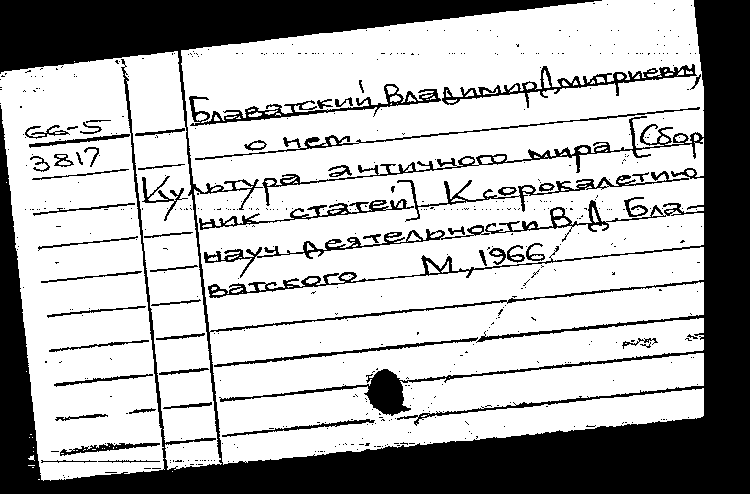 Блаватский, Владимир Дмитриевич,
66-5
о нем.
3817
Культура античного мира. [Сбор
ник статей] К сорокалетию
науч. деятельности В.Д. Бла-
ватского. М., 1966